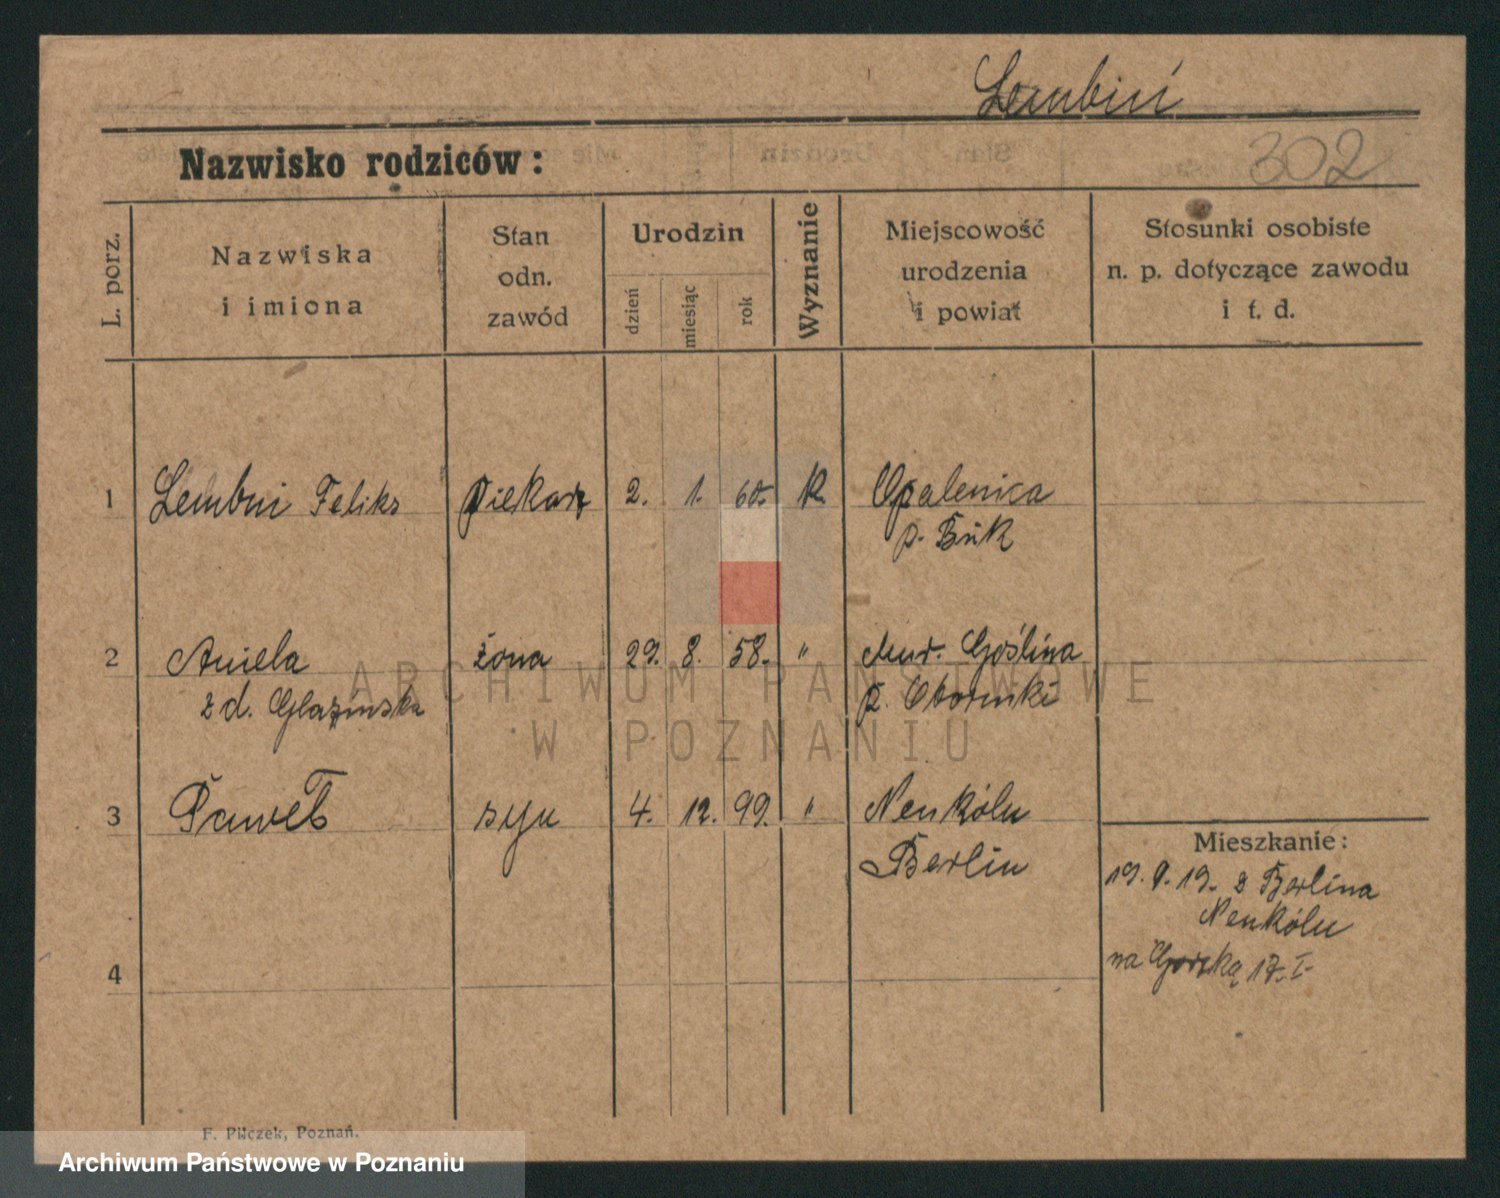 Lembiń
302
Nazwisko rodziców:
L. porz.
Nazwiska
i imiona
Stan
odn.
zawód
Urodzin
dzień
miesiąc
rok
Wyznanie
Miejscowość
urodzenia
i powiat
Stosunki osobiste
n. p. dotyczące zawodu
i t. d.
1 Feliks piekarz 2. 1. 60. K Opalenica
p. Buk
2 Aniela żona 29. 8. 58. " Mur. Goślina
z d. Glazińska p. Oborniki
3 Paweł syn 4. 12. 99. " Neukölu
Berlin
Mieszkanie:
19. 9. 19. z Berlina
Neukölu
na 17. I.
4
F. Pilczek, Poznań.
ARCHIWUM PAŃSTWOWE
W POZNANIU
Archiwum Państwowe w Poznaniu